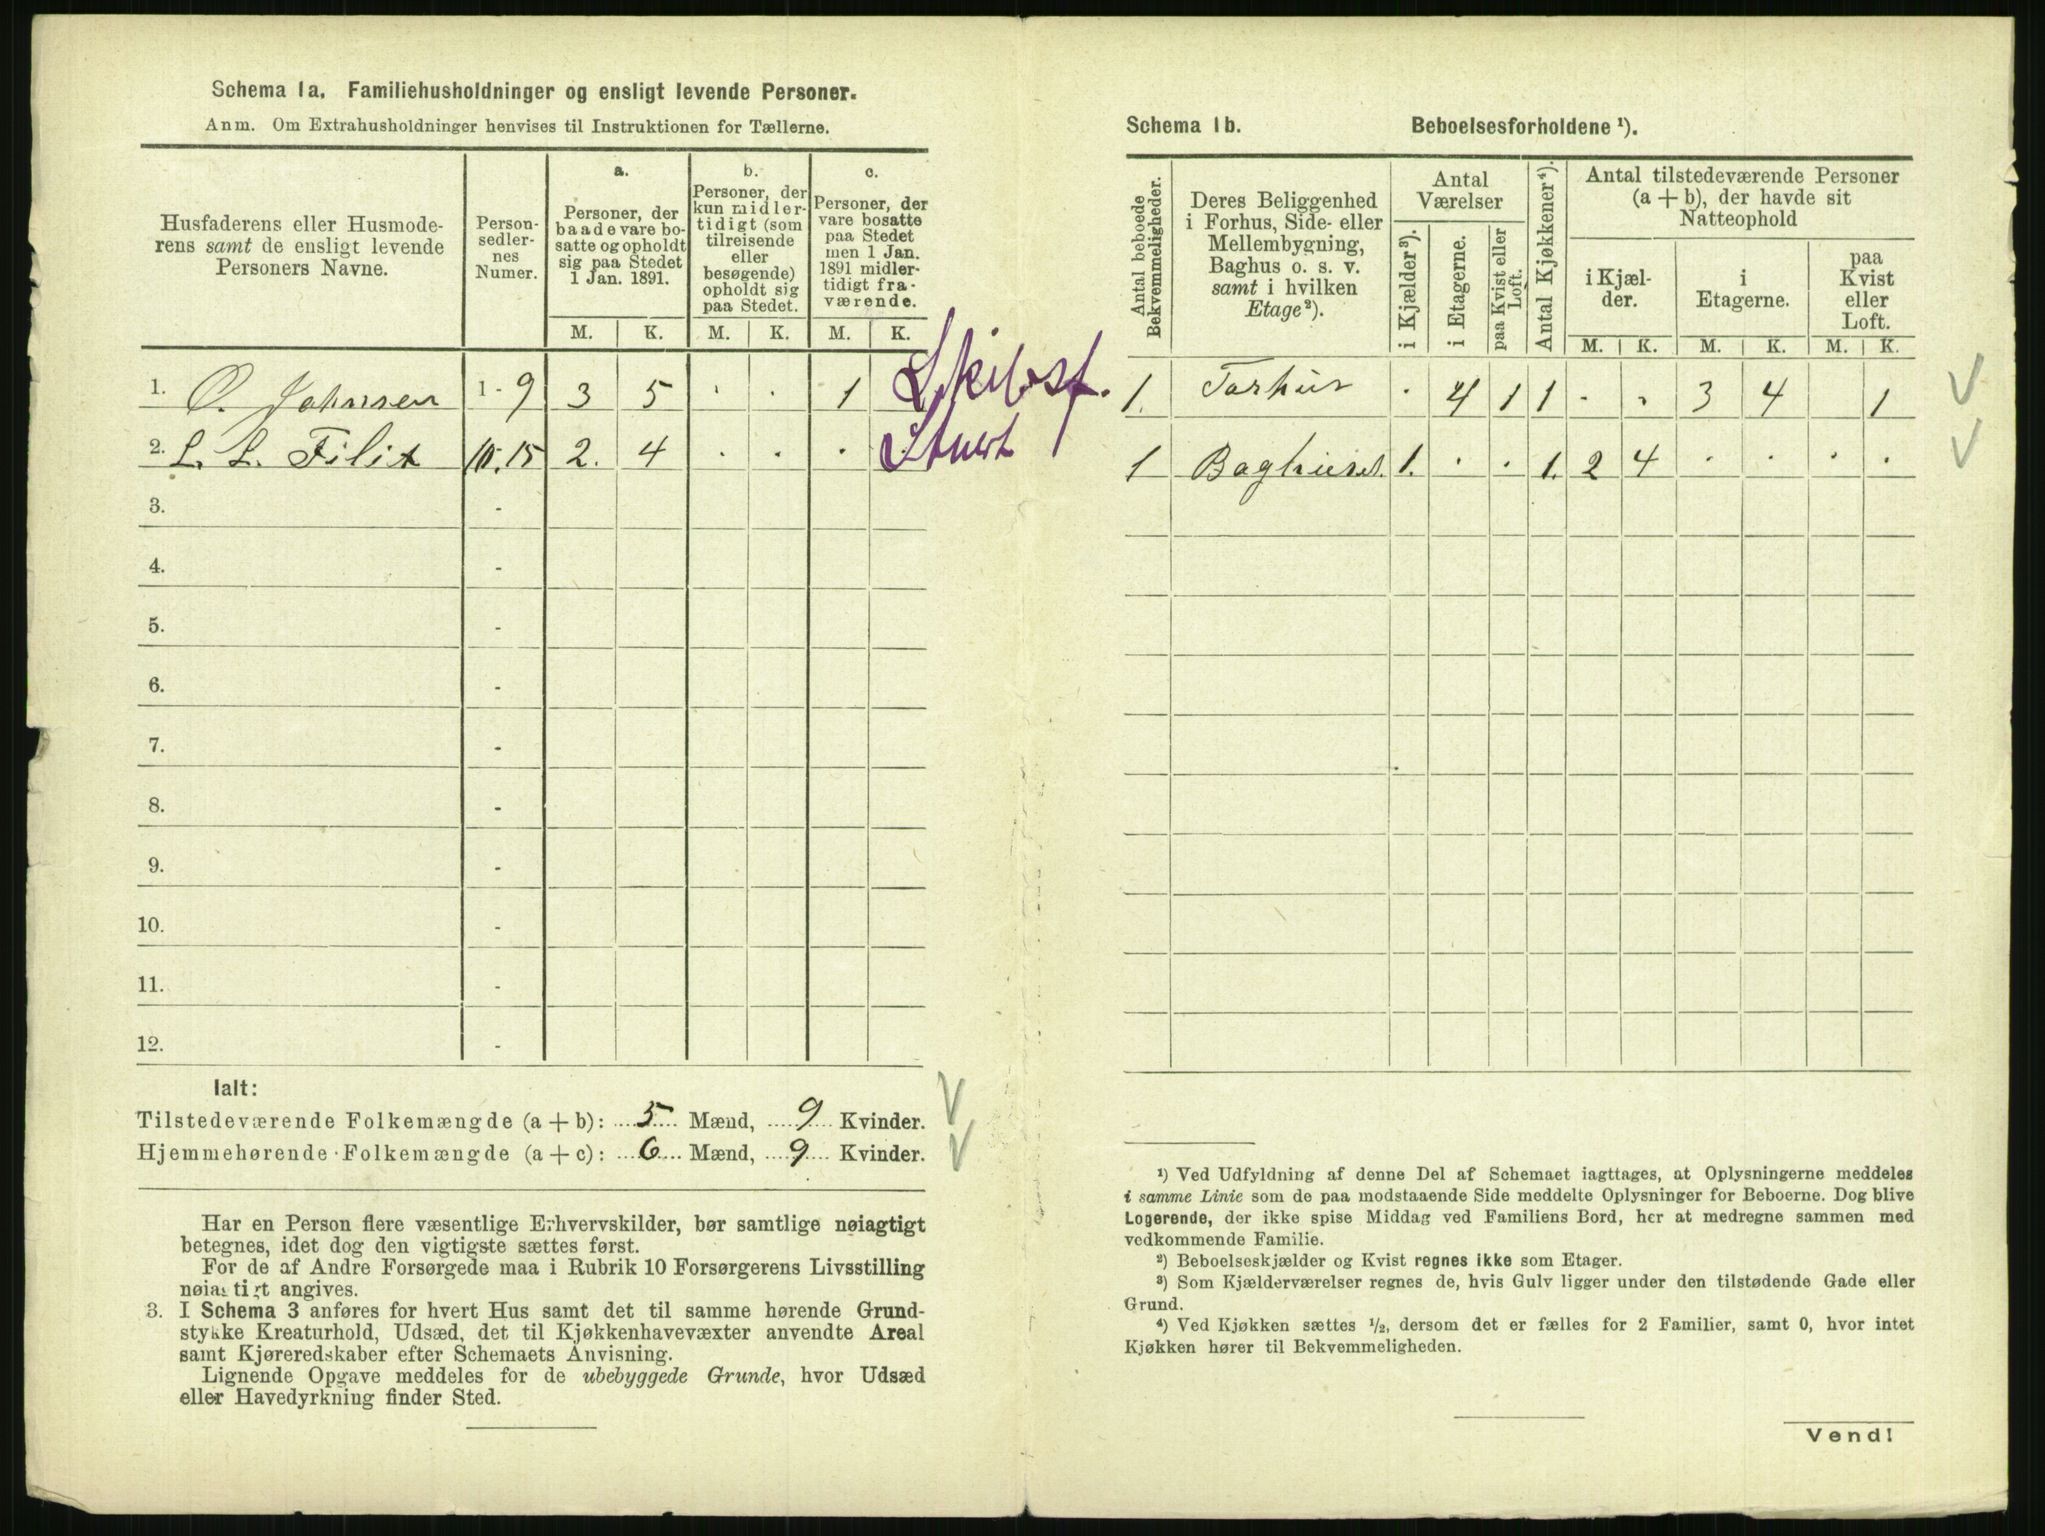 Schema 1a. Familiehusholdninger og ensligt levende Personer.
Anm. Om Extrahusholdninger henvises til Instruktionen for Tællerne.
Husfaderens eller Husmoderens samt de ensligt levende Personers Navne.
Personsedlernes Numer.
a.
Personer, der baade vare bosatte og opholdt sig paa Stedet 1 Jan. 1891.
b.
Personer, der kun midlertidigt (som tilreisende eller besøgende) opholdt sig paa Stedet.
c.
Personer, der vare bosatte paa Stedet men 1 Jan. 1891 midlertidigt fraværende.
M. K. M. K. M. K.
1. O. Johnsen 1 - 9 3 5 · · 1
2. L. L. 10.15 2. 4 · · ·
3. -
4. -
5. -
6. -
7. -
8. -
9. -
10. -
11. -
12. -
Ialt:
Tilstedeværende Folkemængde (a + b): 5 Mænd, 9 Kvinder.
Hjemmehørende Folkemængde (a + c): 6 Mænd, 9 Kvinder.
Har en Person flere væsentlige Erhvervskilder, bør samtlige nøiagtigt
betegnes, idet dog den vigtigste sættes først.
For de af Andre Forsørgede maa i Rubrik 10 Forsørgerens Livsstilling
nøiagtigt angives.
3. I Schema 3 anføres for hvert Hus samt det til samme hørende Grund-
stykke Kreaturhold, Udsæd, det til Kjøkkenhavevæxter anvendte Areal
samt Kjøreredskaber efter Schemaets Anvisning.
Lignende Opgave meddeles for de ubebyggede Grunde, hvor Udsæd
eller Havedyrkning finder Sted.
Schema 1b. Beboelsesforholdene ¹).
Antal beboede Bekvemmeligheder.
Deres Beliggenhed i Forhus, Side- eller Mellembygning, Baghus o. s. v. samt i hvilken Etage ²).
Antal Værelser
i Kjælder ³).
i Etagerne.
paa Kvist eller Loft.
Antal Kjøkkener ⁴).
Antal tilstedeværende Personer (a + b), der havde sit Natteophold
i Kjælder.
i Etagerne.
paa Kvist eller Loft.
M. K. M. K. M. K.
1. Forhus · 4 1 1 · · 3 4 1
1 Baghuset. 1. · · 1. 2 4 · · · ·
¹) Ved Udfyldning af denne Del af Schemaet iagttages, at Oplysningerne meddeles
i samme Linie som de paa modstaaende Side meddelte Oplysninger for Beboerne. Dog blive
Logerende, der ikke spise Middag ved Familiens Bord, her at medregne sammen med
vedkommende Familie.
²) Beboelseskjælder og Kvist regnes ikke som Etager.
³) Som Kjælderværelser regnes de, hvis Gulv ligger under den tilstødende Gade eller
Grund.
⁴) Ved Kjøkken sættes ½, dersom det er fælles for 2 Familier, samt 0, hvor intet
Kjøkken hører til Bekvemmeligheden.
Vend!